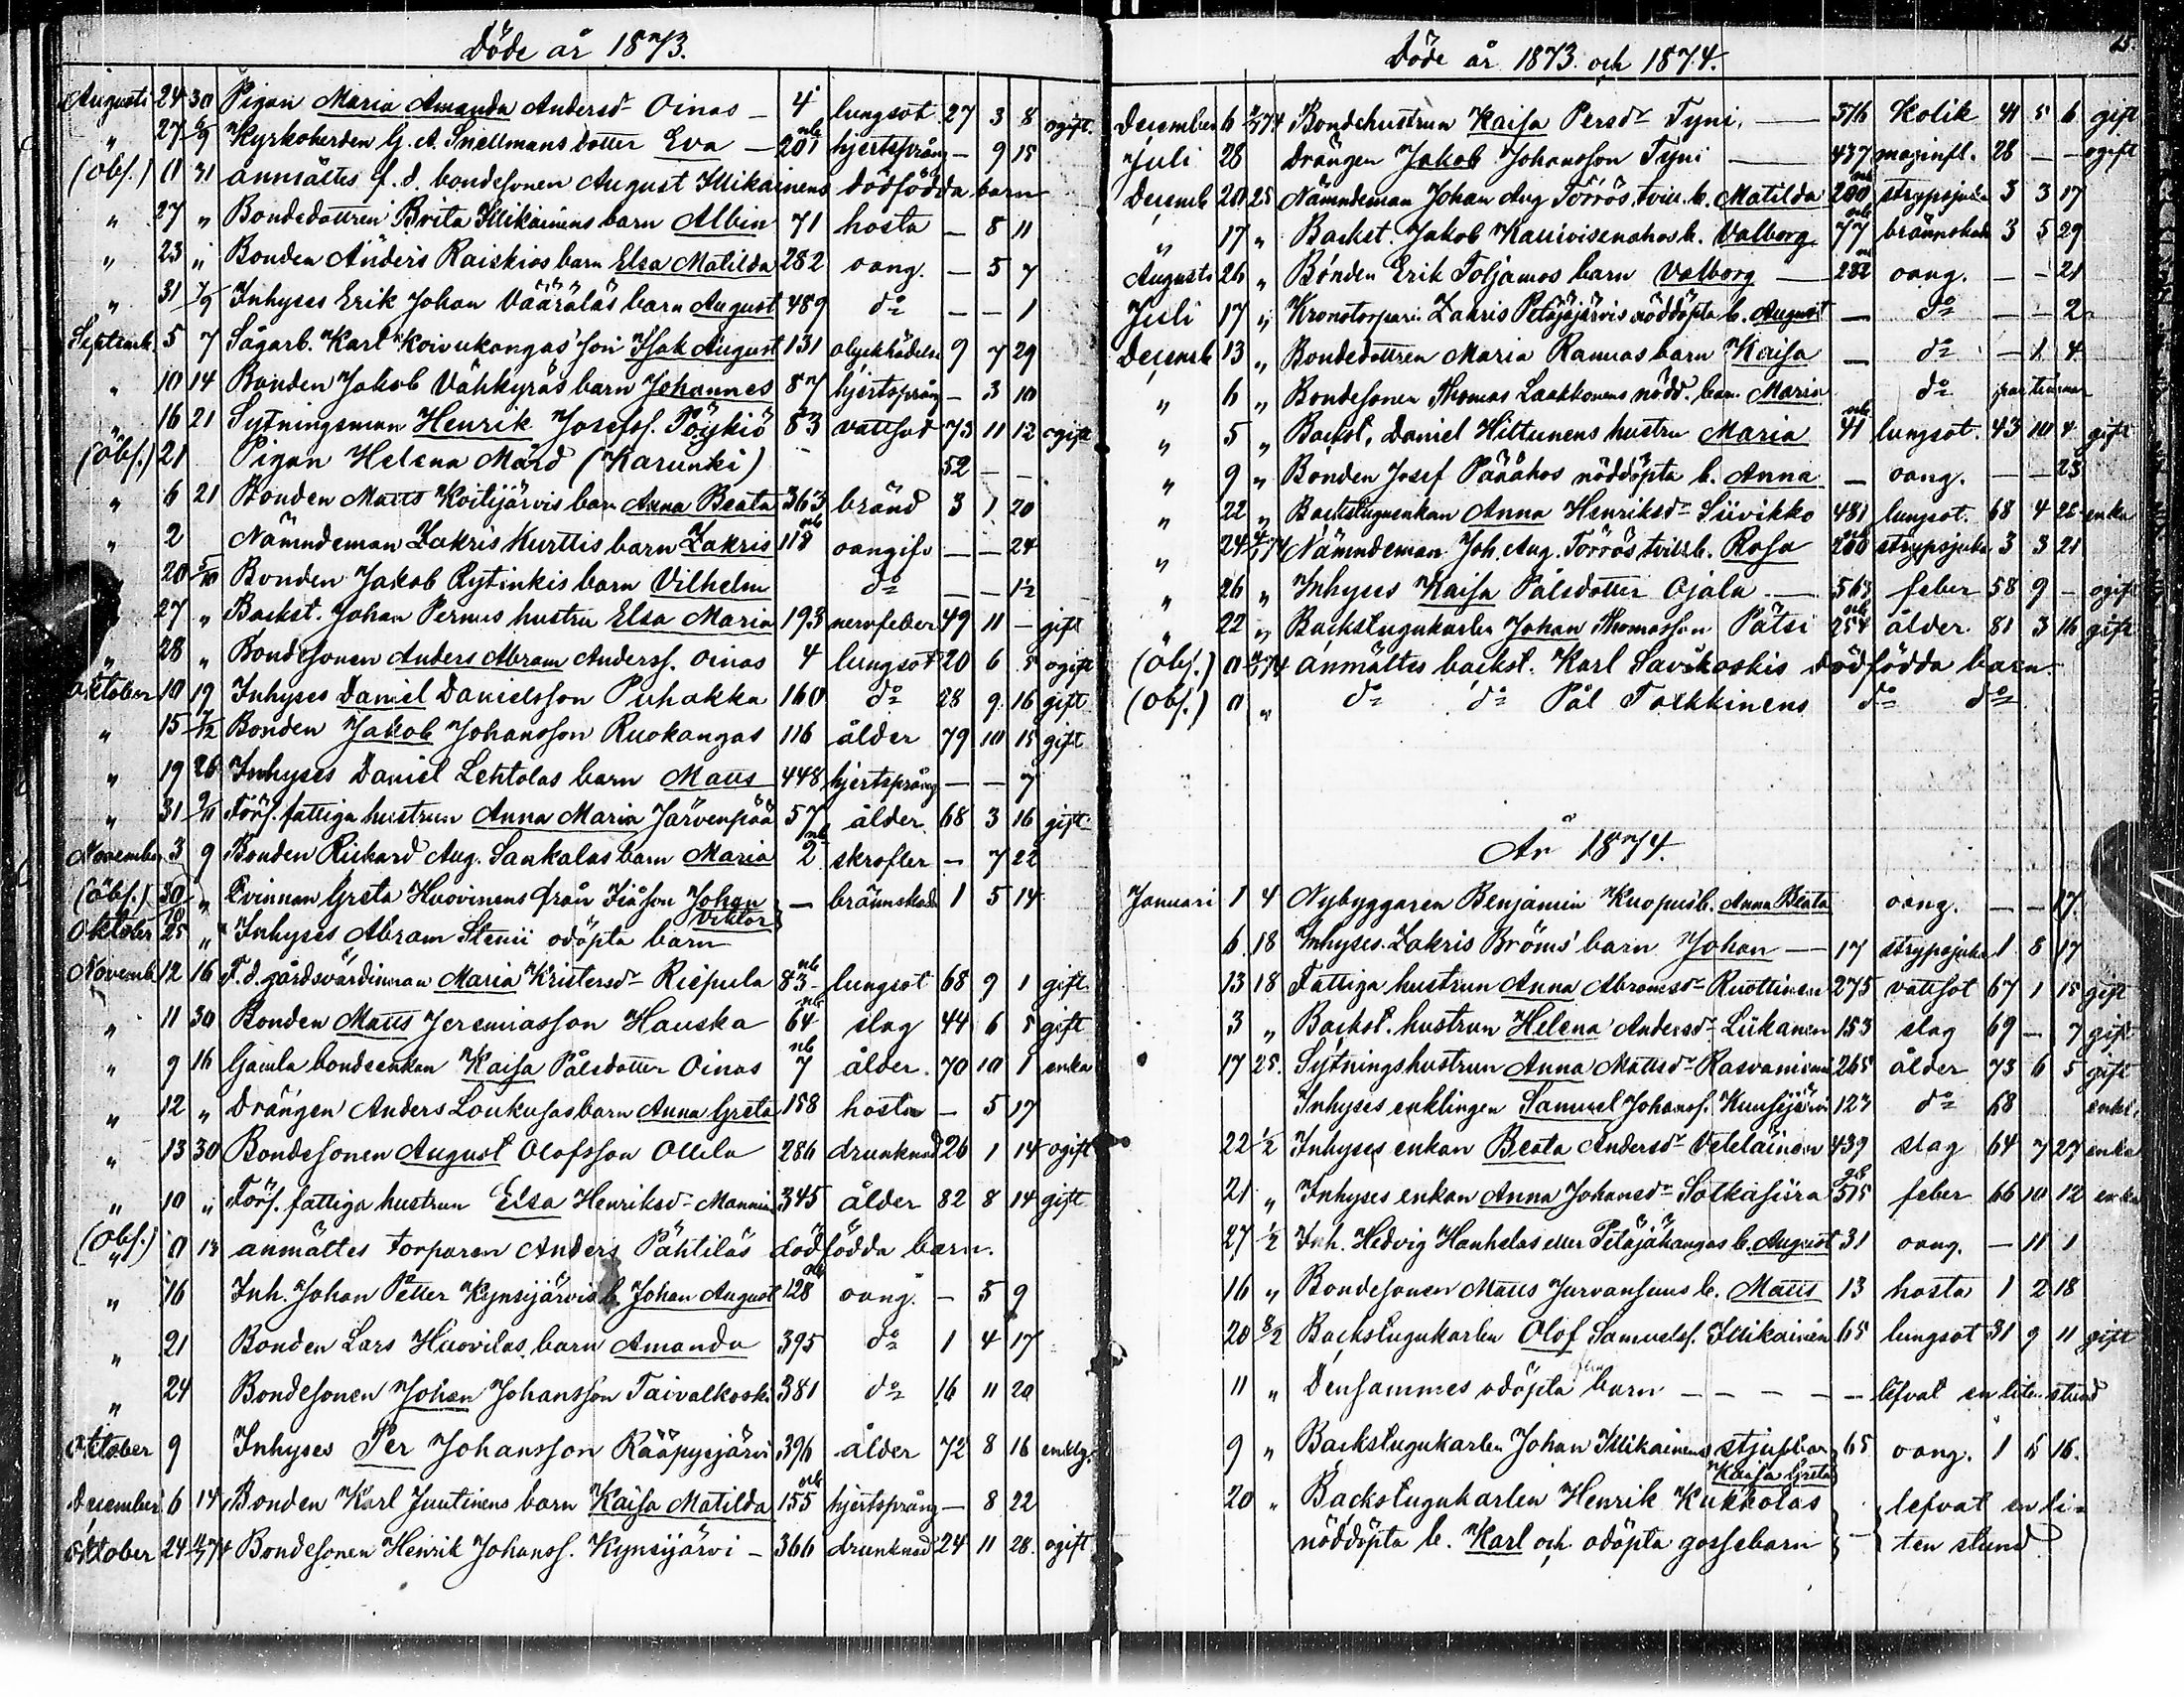 Döde år 1873.
Augusti 24 30 Pigan Maria Amanda Andersdr Oinas — 4 lungsot 27 3 8 ogift
" 27 6/9 Kyrkoherden G. A. Snellmans dotter Eva — 201 nb hjertsprång — 9 15
(Obs.) 0 31 anmältes f. d. bondesonen August Illikainens dödfödda barn
" 27 " Bondedottren Brita Illikainens barn Albin 71 hosta — 8 11
" 23 " Bonden Anders Raiskios barn Elsa Matilda 282 oang. — 5 7
" 31 7/9 Inhyses Erik Johan Vääräläs barn August 489 do — — 1
Septemb. 5 7 Sågarb. Karl Koivukangas' son Isak August 131 olyckshändelse 9 7 29
" 10 14 Bonden Jakob Vähkyräs barn Johannes 87 hjertsprång — 3 10
" 16 21 Sytningsman Henrik Josefss. Pöykiö 83 vattsot 73 11 12 ogift
(Obs.) 21 Pigan Helena Mård (Karunki) 52 — —
" 6 21 Bonden Matts Koitijärvis barn Anna Beata 363 bränd 3 1 20
" 2 Nämndeman Zakris Kurttis barn Zakris 118 nb oangifv — — 24
20 5/10 Bonden Jakob Rytinkis barn Vilhelm do — — 1/2
27 " Backst. Johan Pernus hustru Elsa Maria 193 nervfeber 49 11 — gift
28 " Bondesonen Anders Abram Anderss. Oinas 4 lungsot 20 6 5 ogift
Oktober 10 19 Inhyses Daniel Danielsson Puhakka 160 do 28 9 16 gift
" 15 7/12 Bonden Jakob Johansson Ruokangas 116 ålder 79 10 15 gift
" 19 26 Inhyses Daniel Lehtolas barn Matts 448 hjertsprång — — 7
" 31 9/11 Förs. fattiga hustrun Anna Maria Järvenpää 57 ålder 68 3 16 gift
November 3 9 Bonden Rickard Aug. Sankalas barn Maria 2 nb skrofler — 7 22
(Obs.) 30/10 " Qvinnan Greta Huovinens från Iiå son Johan Viktor — brännskada 1 5 14
Oktober 25 " Inhyses Abram Stenii odöpta barn
Novemb. 12 16 F. d. gårdsvärdinnan Maria Kristersdr Riepula 83 nb lungsot 68 9 1 gift
" 11 30 Bonden Matts Jeremiasson Hauska 64 nb slag 44 6 5 gift
" 9 16 Gamla bondeenkan Kaisa Pålsdotter Oinas 7 nb ålder. 70 10 1 enka
" 12 " Drängen Anders Loukusas barn Anna Greta 158 hosta — 5 17
" 13 30 Bondesonen August Olofsson Ollila 286 drunknad 26 1 14 ogift
" 10 " Förs. fattiga hustrun Elsa Henriksdr Mannin 345 ålder 82 8 14 gift
(Obs.) " 0 13 anmältes torparen Anders Pähtiläs dödfödda barn.
" 16 Inh. Johan Petter Kynsijärvis b. Johan August 128 nb oang. — 5 9
" 21 Bonden Lars Huovilas barn Amanda 395 do 1 4 17
" 24 Bondesonen Johan Johansson Taivalkoski 381 do 16 11 20
Oktober 9 Inhyses Per Johansson Rääpysjärvi 396 ålder 72 8 16 enklg.
December 6 14 Bonden Karl Juutinens barn Kaisa Matilda 155 nb hjertsprång — 8 22
Oktober 24 74 Bondesonen Henrik Johanss. Kynsijärvi — 366 drunknad 24 11 28. ogift
15.
Döde år 1873 och 1874.
December 6 74 Bondehustrun Kaisa Persdr Tyni. — 516 Kolik 41 5 6 gift
Juli 28 Drängen Jakob Johansson Tyni — 437 maginfl. 28 — — ogift
Decemb 20 25 Nämndeman Johan Aug Törrös tvill. b. Matilda 200 nb strypsjuka 3 3 17
" 17 " Backst. Jakob Kauvisenahos b. Valborg 77 nb brännskada 3 5 29
Augusti 26 " Bonden Erik Toljamos barn Valborg — 282 oang. — — 21
Juli 17 " Kronotorparn Zakris Petäjäjärvis nöddöpta b. August — do — — 2
Decemb 13 " Bondedottren Maria Ranuas barn Kaisa — do — 1 4
" 6 " Bondesonen Thomas Laakkonens nödd. barn Maria do par timmar
" 5 " Backst. Daniel Hiltunens hustru Maria 41 nb lungsot. 43 10 4 gift
" 9 " Bonden Josef Pääahos nöddöpta b. Anna — oang. — — 23
" 22 " Backstuguenkan Anna Henriksdr Siivikko 481 lungsot. 68 4 26 enka
" 24 74 Nämndeman Joh. Aug. Törrös tvill. b. Rosa 200 strypsjuka 3 3 21
" 26 " Inhyses Kaisa Pålsdotter Ojala — 563 feber 58 9 — ogift
" 22 " Backstugukarlen Johan Thomasson Pätsi 254 nb ålder 81 3 16 gift
(Obs.) 0 74 anmältes backst. Karl Savikoskis dödfödda barn.
(Obs.) 0 " do do Pål Tolkkinens do do
År 1874.
Januari 1 4 Nybyggaren Benjamin Kuopus b. Anna Beata oang. — — 17.
6 18 Inhyses Zakris Bröms' barn Johan — 17 strypsjuka 1 8 17
13 18 Fattiga hustrun Anna Abramsdr Ruottinen 275 vattsot 67 1 15 gift
3 " Backst. hustrun Helena Andersdr Liikanen 153 slag 69 — 7 gift
17 25. Sytningshustrun Anna Mattsdr Rasvaniemi 265 ålder 73 6 5 gift
Inhyses enklingen Samuel Johanss. Kuusijärvi 123 do 68 enkl.
22 1/2 Inhyses enkan Beata Andersdr Veteläinen 439 slag 64 7 27 enka
21 " Inhyses enkan Anna Johansdr Sotkasiira 515 feber 66 10 12 enka
27 1/2 Inh. Hedvig Hanhelas eller Petäjäkangas b. August 31 oang. — 11 1
16 " Bondesonen Matts Jurvansuus b. Matts 13 hosta 1 2 18
20 8/2 Backstugukarlen Olof Samuelss. Illikainen 65 lungsot 31 9 11 gift
11 " Densammes odöpta barn — — — — — lefvat en liten stund
9 " Backstugukarlen Johan Illikainens stjufbarn Kaisa Greta 65 oang. 1 5 16.
20 " Backstugukarlen Henrik Kukkolas lefvat en li=
nöddöpta b. Karl och odöpta gossebarn — ten stund